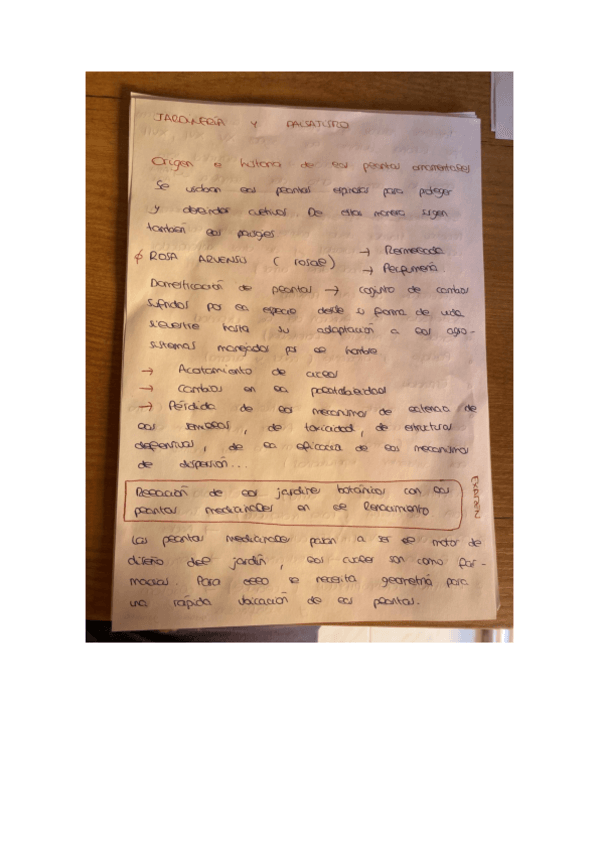 JARDINERÍA Y PAISAJISMO
Origen e historia de las plantas ornamentales
Se usaban las plantas espinosas para proteger
y defender cultivos. De esta manera surgen
también los paisajes.
ROSA ARVENSIS (rosae) → Mermelada
→ Perfumería.
Domesticación de plantas → conjunto de cambios
sufridos por la especie desde su forma de vida
silvestre hasta su adaptación a los agro-
sistemas manejados por el hombre.
→ Acortamiento de ciclos
→ Cambios en la palatabilidad
→ Pérdida de los mecanismos de latencia de
las semillas, de toxicidad, de estructuras
defensivas, de la eficacia de los mecanismos
de dispersión...
Relación de los jardines botánicos con las
plantas medicinales en el Renacimiento
EXAMEN
Las plantas medicinales pasan a ser el motor de
diseño del jardín, los cuales son como far-
macias. Para ello se necesita geometría para
una rápida ubicación de las plantas.